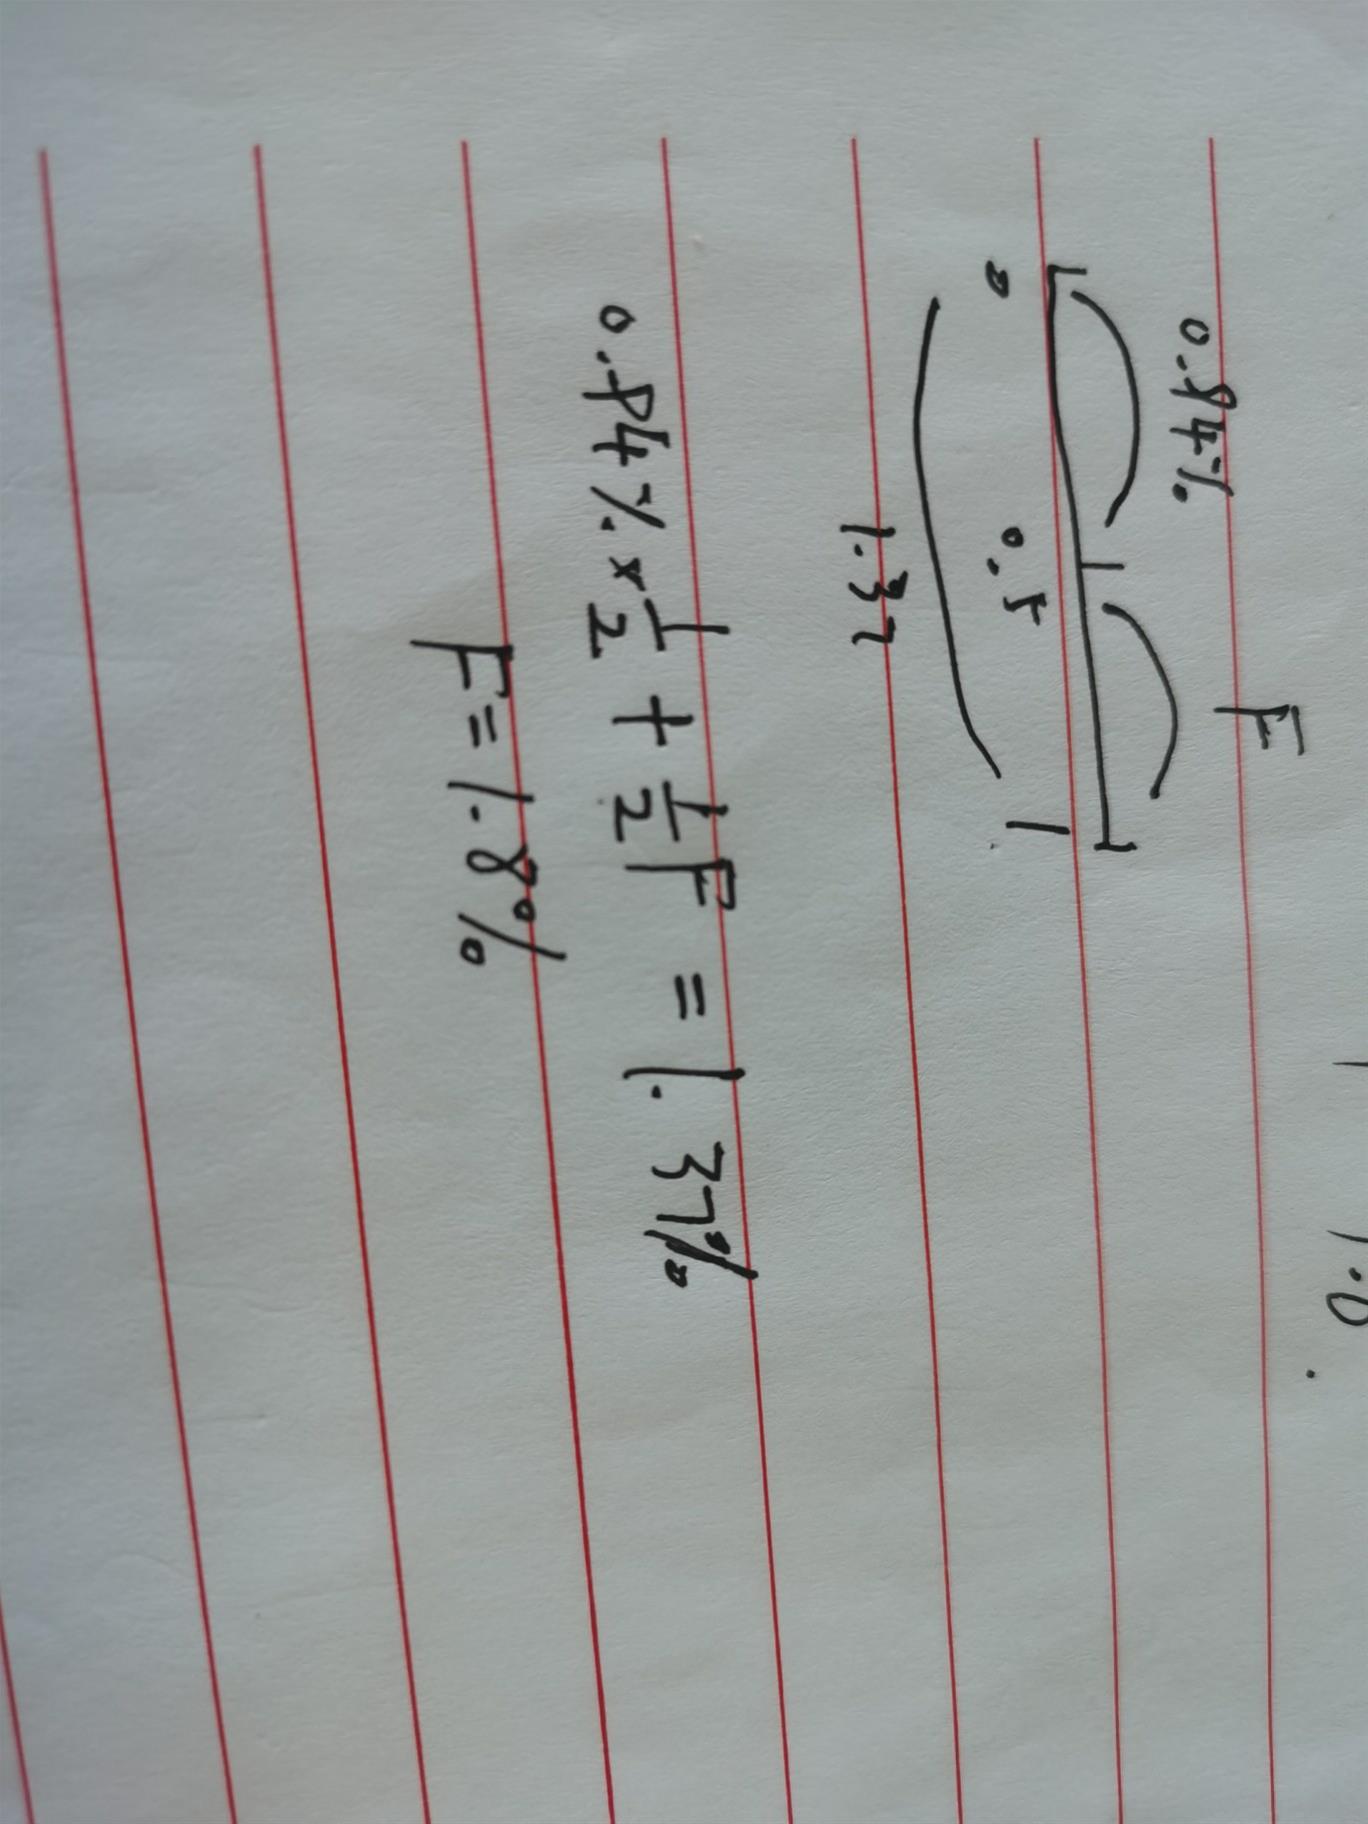 0.94% F
0 0.5 1
1.37
0.94% × 1/2 + 1/2 F = 1.37%
F = 1.8%